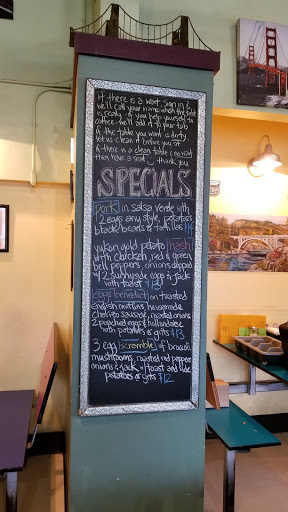 if there is a wait, sign in &
we'll call your name when the table
is ready. if you help yourself to
coffee we'll add it to your tab
if the table you want is dirty
let us clean it before you sit
if there is a clean table & no wait
then have a seat thank you
SPECIALS
pork in salsa verde with
2 eggs any style, potatoes
black beans & tortillas $14
yukon gold potato hash
with chicken, red & green
bell peppers, onions topped
w/ 2 sunnyside eggs & jack
with toast $13
eggs benedict on toasted
english muffins, housemade
chorizo sausage, roasted onions
2 poached eggs & hollandaise
with potatoes or grits $13
3 egg scramble of broccoli
mushrooms, roasted red peppers
onions & jack w/ toast and side
potatoes or grits $12